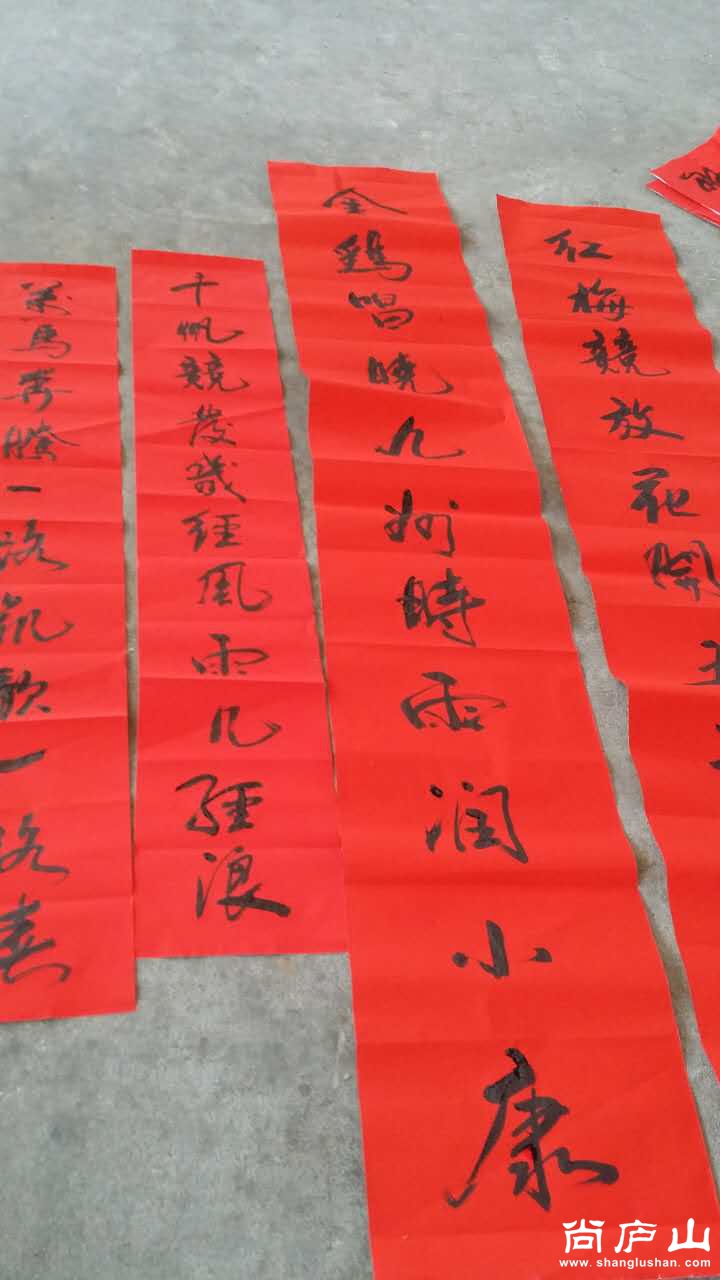 红梅競放花開
金鷄唱曉九州時雨润小康
千帆競發幾經風雨几經浪
萬馬奔騰一路凱歌一路春
尚庐山
www.shanglushan.com